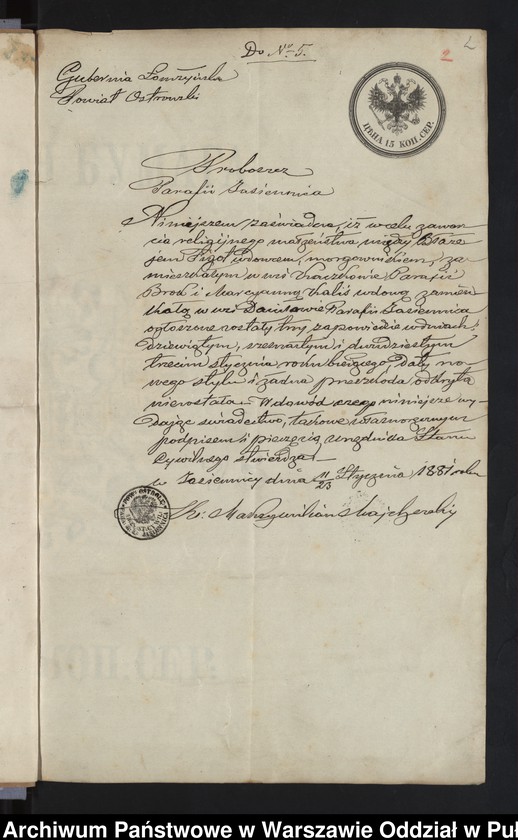 Do No 5.
2
2
Gubernia Łomżyńska
Powiat Ostrowski
ЦѢНА 15 КОП. СЕР.
Proboszcz
Parafii Jasiennica
Niniejszem zaświadcza, iż w celu zawar-
cia religijnego małżeństwa między Błaże-
jem Pigoł wdowcem, morgownikiem, za-
mieszkałym w wsi Kaczkowie Parafii
Brok i Maryanną Kaliś wdową zamiesz-
kałą w wsi Daniłowie Parafii Jasiennica
ogłoszone zostały trzy zapowiedzie w dniach:
dziewiątym, szesnastym i dwudziestym
trzecim stycznia roku bieżącego, daty no-
wego stylu i żadna przeszkoda odkrytą
niezostała. W dowód czego niniejsze wy-
dając świadectwo, takowe własnoręcznym
podpisem i pieczęcią urzędnika Stanu
Cywilnego stwierdza.
w Jasiennicy dnia 11/23 Stycznia 1881 roku
X: Maksymilian Majchrzski
Archiwum Państwowe w Warszawie Oddział w Puł